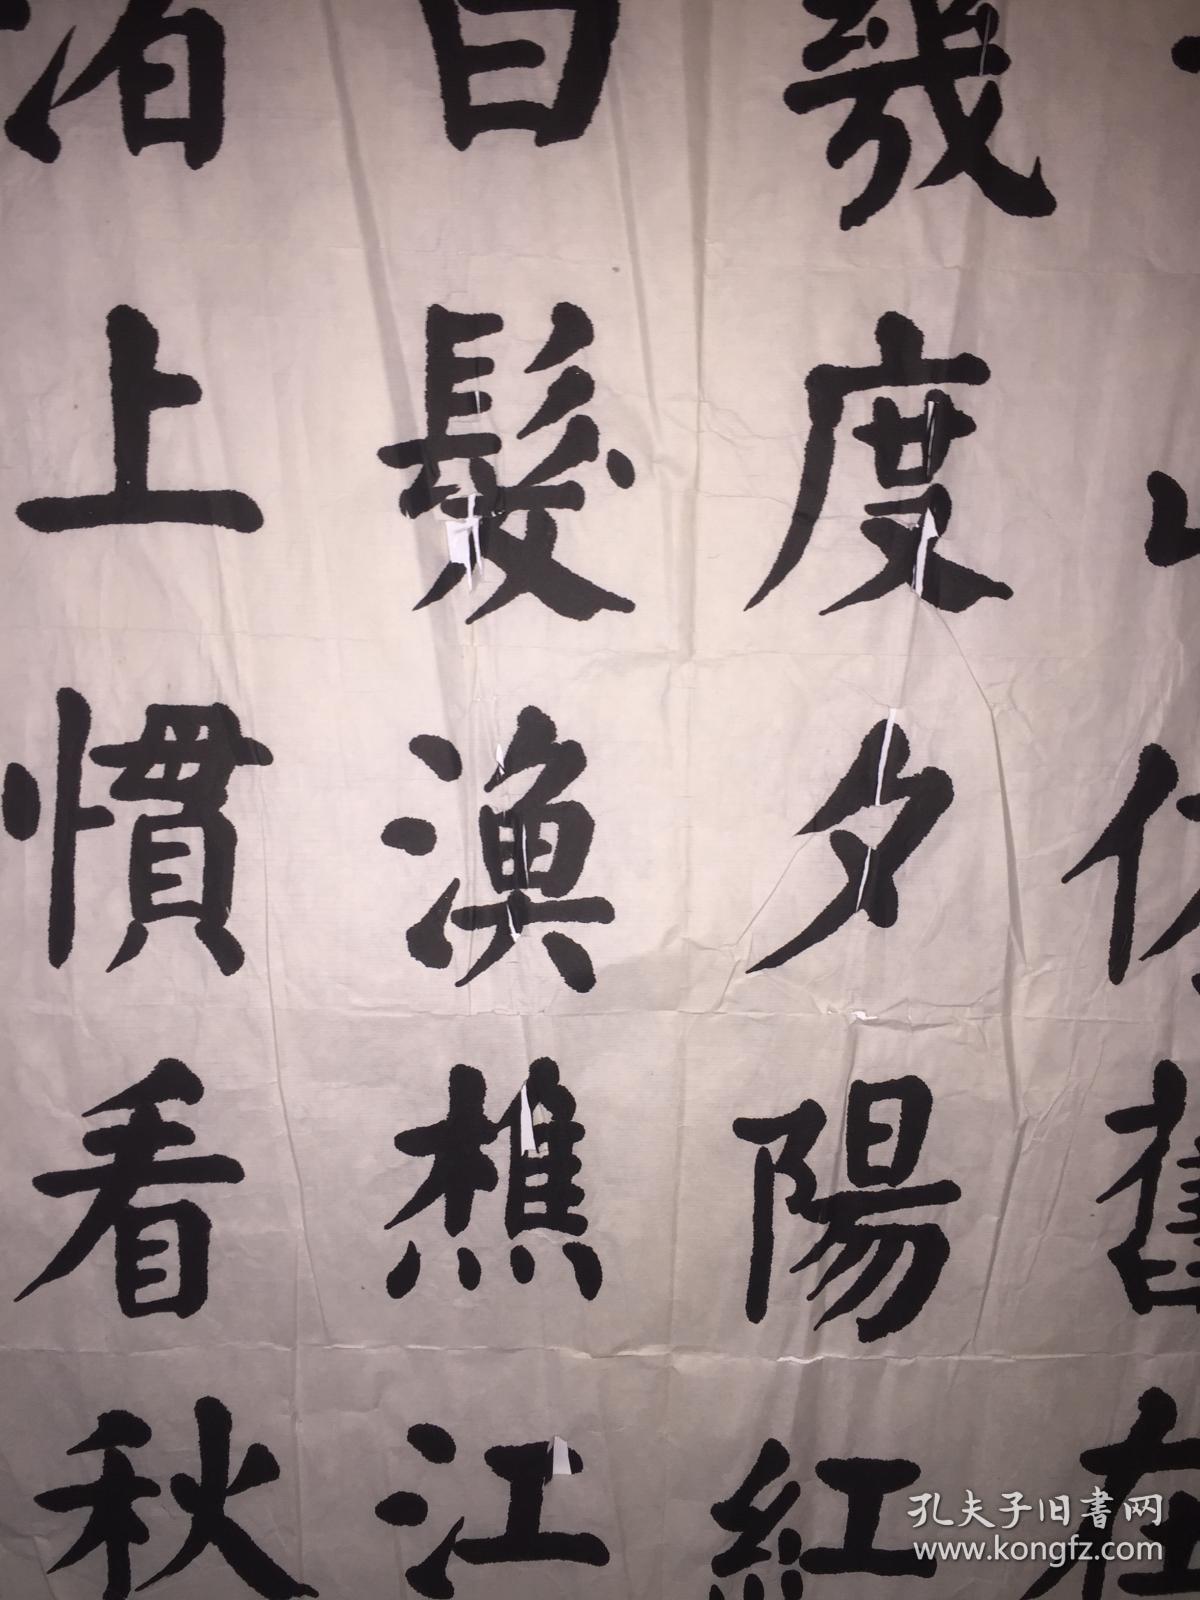 山依舊在
幾度夕陽紅
白髮漁樵江
渚上慣看秋
孔夫子旧書网
www.kongfz.com